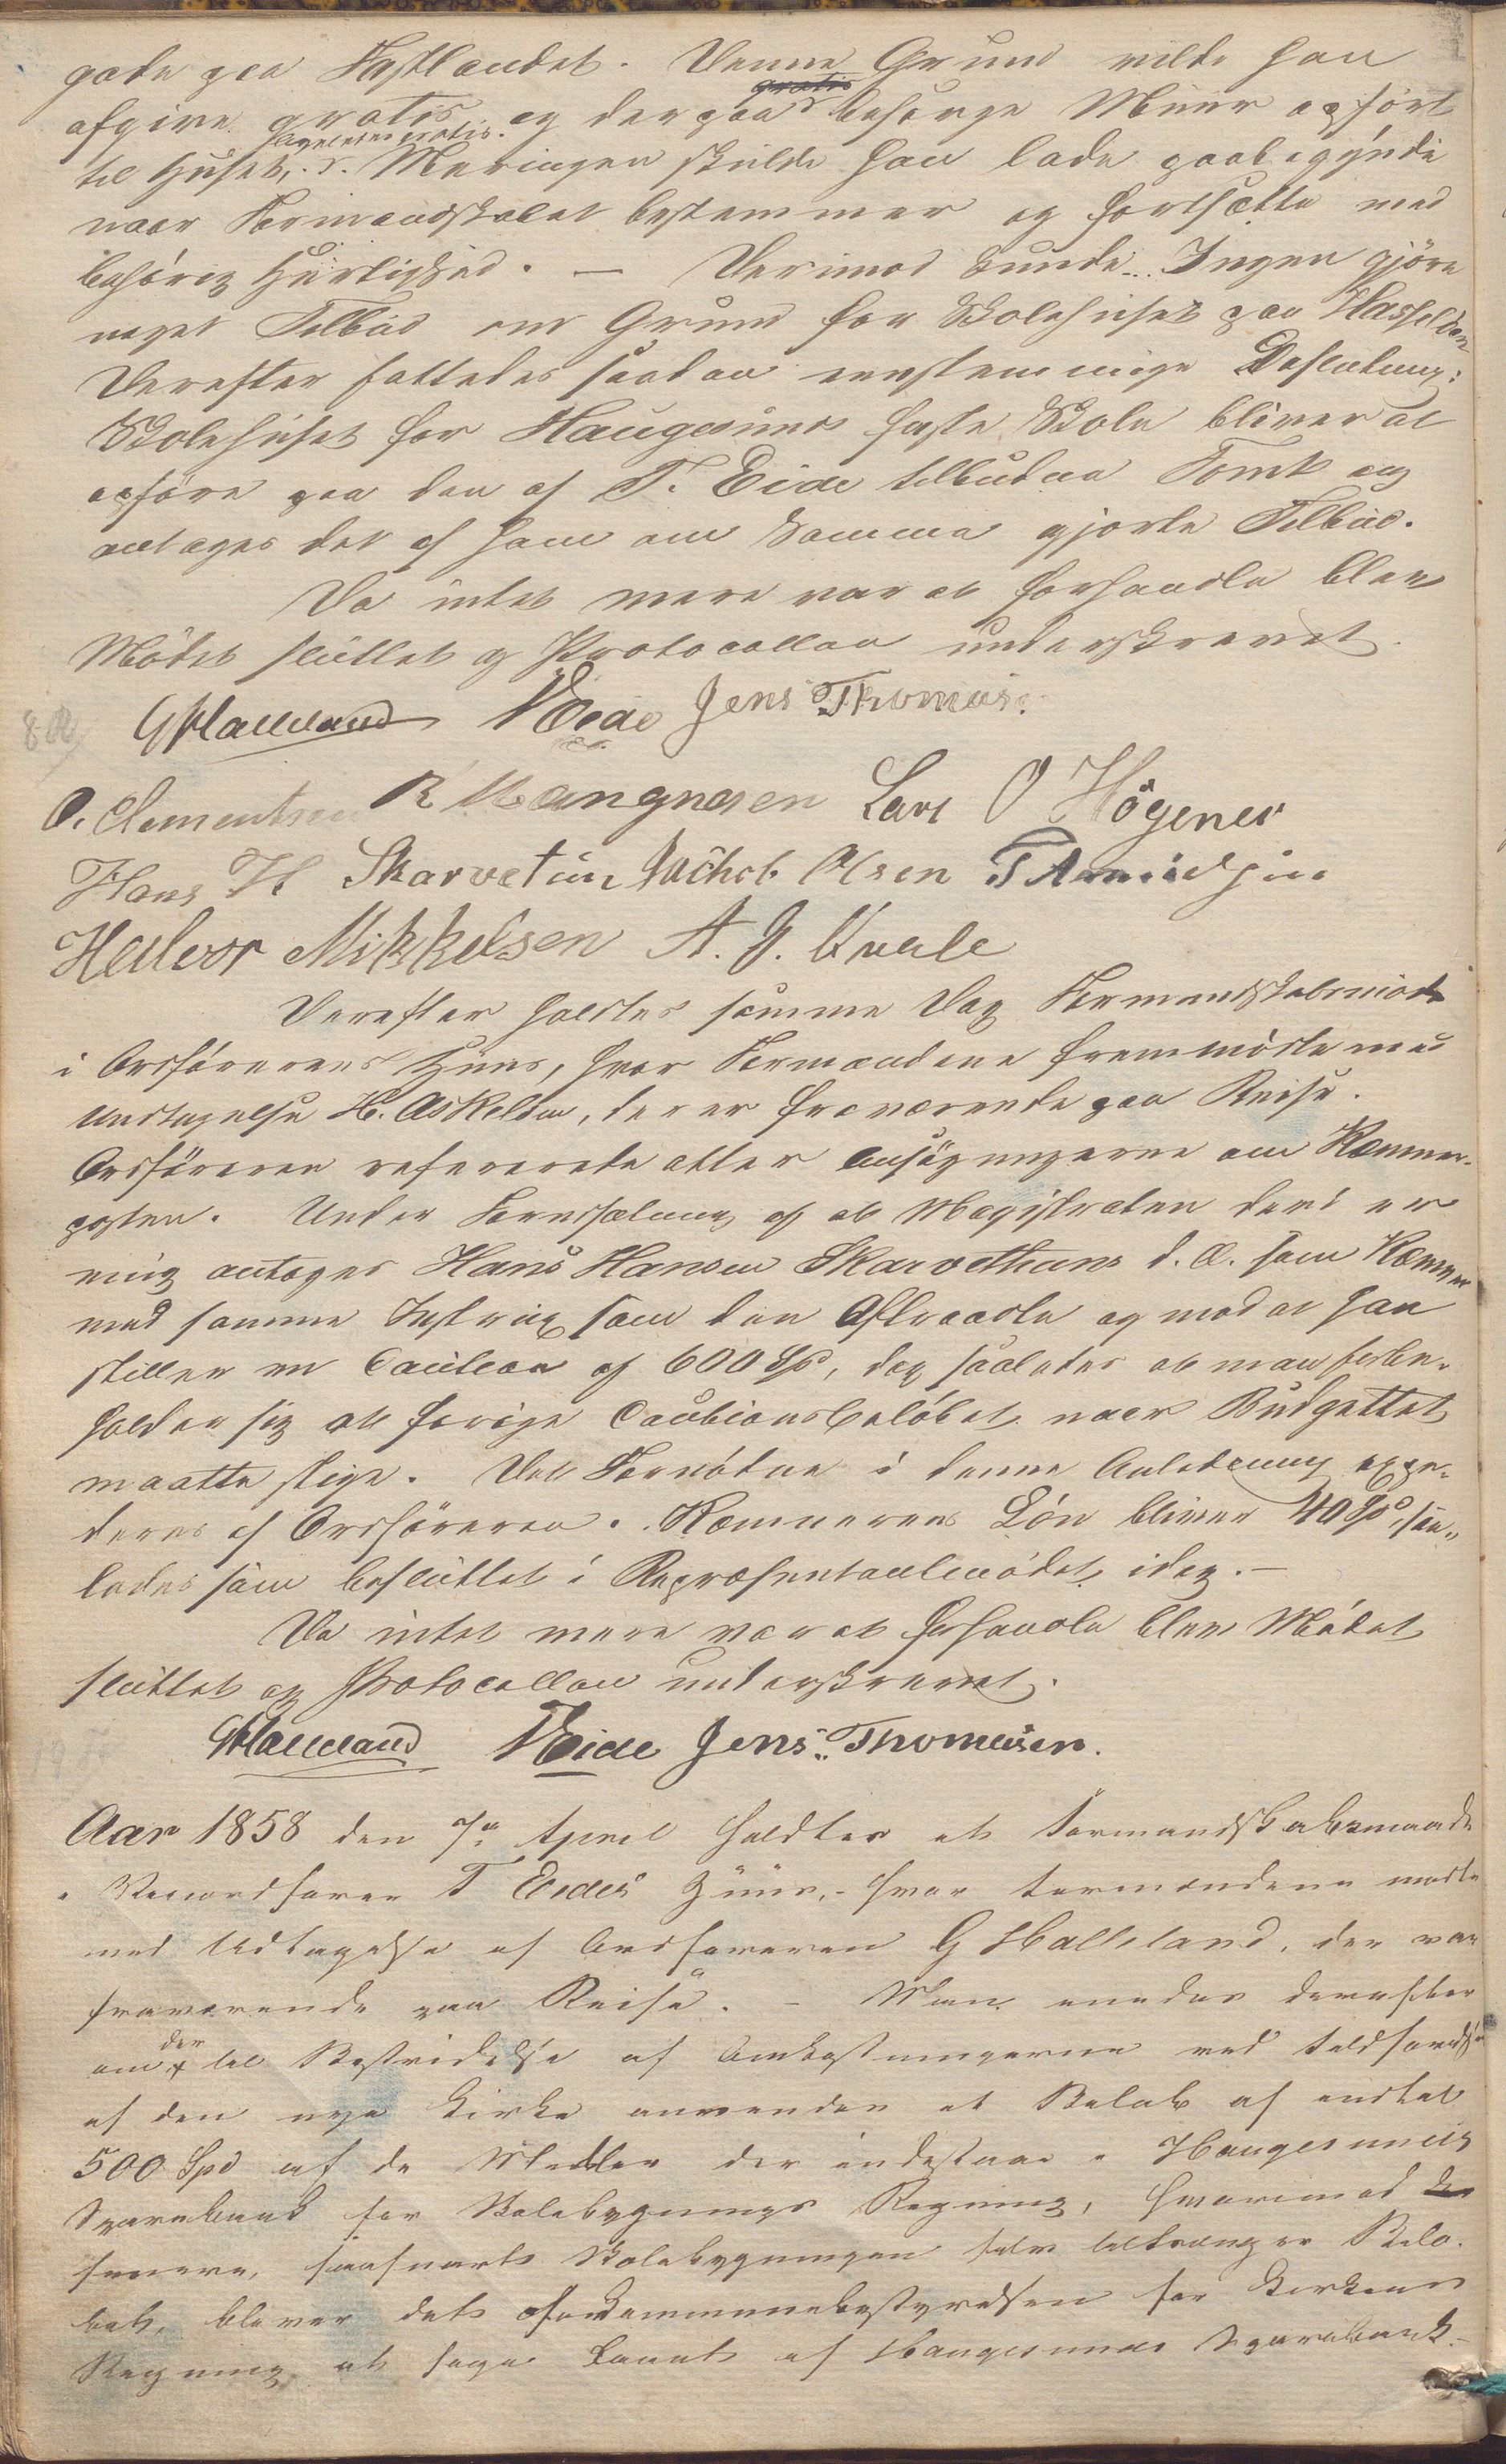 gade paa Fastlandet. Denne Grund vilde han
afgive gratis og derpaa gratis besørge Muur opført
til Huset, ligeledes gratis. Muringen skulde han lade paabegynde
naar Formandskabet bestemmer og fortsætte med
behørig Hurtighed. — Derimod kunde Ingen gjöre
noget Tilbud om Grund for Skolehuset paa Hasseløen
Derefter fattedes saadan eenstemmige Beslutning:
Skolehuset for Haugesunds faste Skole bliver at
opføre paa den af T. Eide tilbudne Tomt og
antages det af ham om Samme gjorte Tilbud.
Da intet mere var at forhandle blev
Mödet sluttet og Protocollen underskrevet.
G Halleland T Eide Jens Thomas.
O. Clementsen R Mangnesen Lars O Högenes
Hans H Skarvetun Jachob Olsen T Amundsen
Halvor Mikkelsen A. J. Kvale
Derefter holdtes samme Dag Formandskabsmöde
i Ordförerens Huus, hvor Formændene fremmödte med
Undtagelse H. Askeland, der er fraværende paa Reise.
Ordföreren refererede atter Ansögningerne om Kæmner-
posten. Under Forudsætning af at Magistraten deri er
enig antages Hans Hansen Skarvethuns d. Æ. som Kæmner
med samme Instrux som den Aftraadte og mod at han
stiller en Caution af 600 Spd, dog saaledes at man forbe-
holder sig at forøge Cautionsbelöbet naar Budgettet
maatte stige. Det Fornödne i denne Anledning expe-
deres af Ordföreren. Kæmnerens Lön bliver 40 Spd, saa-
ledes som besluttet i Repræsentantmödet idag. —
Da intet mere var at forhandle blev Mödet
sluttet og Protocollen underskrevet.
G Halleland T Eide Jens Thomasen.
Aar 1858 den 7de April holdtes et Formandskabsmøde
i Viceordfører T Eides Huus, - hvor Formændene mødte
med Udtagelse af Ordføreren G Halleland, der var
fraværende paa Reise. - Man enedes derefter
om der til Bestridelse af Omkostningerne ved Fuldførelsen
af den nye Kirke anvendes et Beløb af indtil
500 Spd af de Midler der indestaar i Haugesunds
Sparebank for Skolebygnings Regning, hvorimod
senere, saasnart Skolebygningen selv tiltrænger Belø-
bet, bliver det Kommunebestyrelsen for Kirkens
Regning at søge Laant af Haugesunds Sparebank -